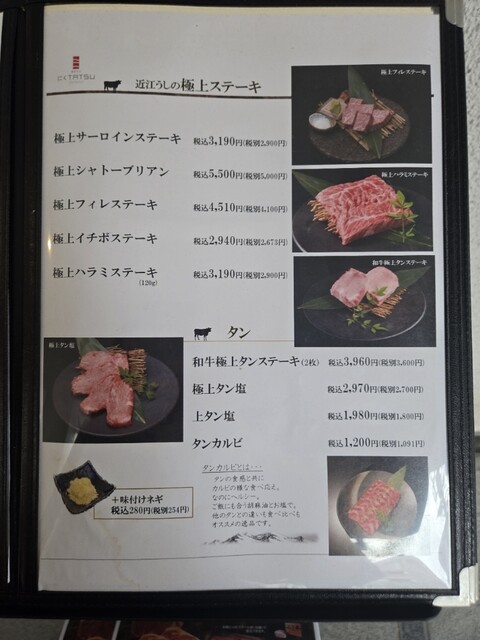 TATSU
近江うしの極上ステーキ
極上フィレステーキ
極上サーロインステーキ 税込3,190円(税別2,900円)
極上シャトーブリアン 税込5,500円(税別5,000円)
極上ハラミステーキ
極上フィレステーキ 税込4,510円(税別4,100円)
極上イチボステーキ 税込2,940円(税別2,673円)
和牛極上タンステーキ
極上ハラミステーキ 税込3,190円(税別2,900円)
(120g)
タン
極上タン塩
和牛極上タンステーキ(2枚) 税込3,960円(税別3,600円)
極上タン塩 税込2,970円(税別2,700円)
上タン塩 税込1,980円(税別1,800円)
タンカルビ 税込1,200円(税別1,091円)
タンカルビとは・・・
タンの食感と共に
カルビの様な食べ応え。
なのにヘルシー。
ご飯にも合う胡麻油とお塩で。
他のタンとの違いも食べ比べも
オススメの逸品です。
+味付けネギ
税込280円(税別254円)